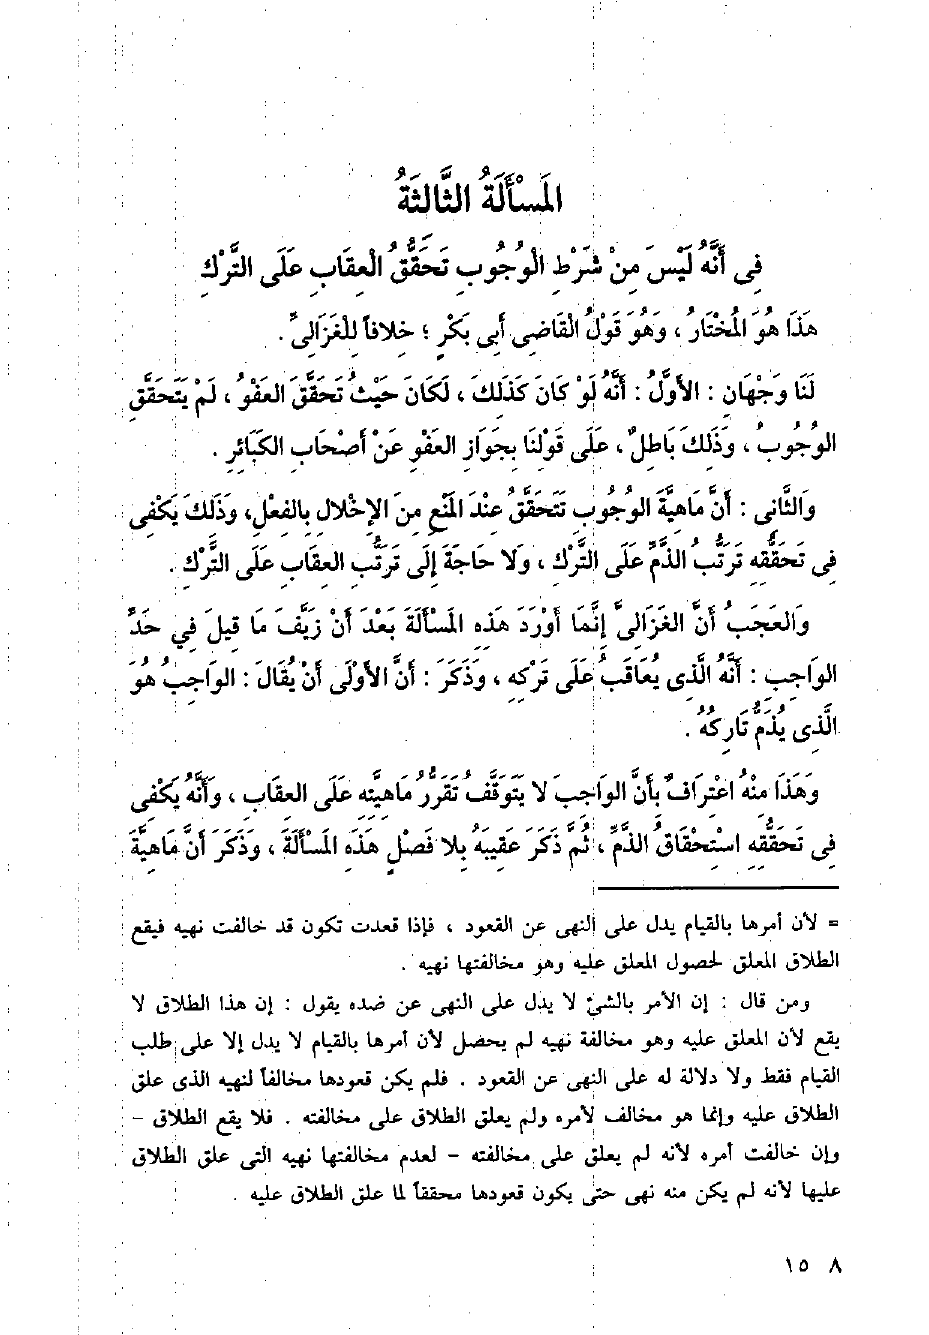 المَسْأَلَةُ الثَّالثَةُ
فِى أَنَّهُ لَيْسَ مِنْ شَرْطِ الْوُجُوبِ تَحَقُّقُ الْعِقَابِ عَلَى التَّرْكِ
هَذَا هُوَ المُخْتَارُ ، وَهُوَ قَوْلُ الْقَاضِى أَبِى بَكْرٍ ؛ خلافاً للْغَزَالِىِّ .
لَنَا وَجْهَانِ : الأَوَّلُ : أَنَّهُ لَوْ كَانَ كَذَلكَ ، لَكَانَ حَيْثُ تَحَقَّقَ العَفْوُ ، لَمْ يَتَحَقَّقِ
الوُجُوبُ ، وَذَلكَ بَاطلٌ ، عَلَى قَوْلنَا بجَوَاز العَفْو عَنْ أَصْحَاب الكَبَائرِ .
وَالثَّانِى : أَنَّ مَاهيَّةَ الوُجُوبِ تَتَحَقَّقُ عنْدَ المَنْعِ منَ الإخْلالِ بالفعْلِ، وَذَلكَ يَكْفِى
فِى تَحَقُّقِهِ تَرَتُّبُ الذَّمِّ عَلَى التَّرْكِ ، وَلا حَاجَةَ إِلَى تَرَتُّبِ العِقَابِ عَلَى التَّرْكِ .
وَالعَجَبُ أَنَّ الغَزَالِىَّ إِنَّمَا أَوْرَدَ هَذه المَسْأَلَةَ بَعْدَ أَنْ زَيَّفَ مَا قِيلَ فِي حَدِّ
الوَاجِبِ : أَنَّهُ الَّذى يُعَاقَبُ عَلَى تَرْكِهِ ، وَذَكَرَ : أَنَّ الأَوْلَى أَنْ يُقَالَ : الوَاجِبُ هُوَ
الَّذى يُذَمُّ تَارِكُهُ .
وَهَذَا منْهُ اعْتِرَافٌ بأَنَّ الوَاجبَ لا يَتَوَقَّفُ تَقَرُّرُ مَاهِيَّتِهِ عَلَى العقَابِ ، وَأَنَّهُ يَكْفِى
فِى تَحَقُّقِهِ اسْتحْقَاقُ الذَّمِّ ، ثُمَّ ذَكَرَ عَقِيبَهُ بِلا فَصْلٍ هَذِهِ المَسْأَلَةَ ، وَذَكَرَ أَنَّ مَاهيَّةَ
= لأن أمرها بالقيام يدل على النهى عن القعود ، فإذا قعدت تكون قد خالفت نهيه فيقع
الطلاق المعلق لحصول المعلق عليه وهو مخالفتها نهيه .
ومن قال : إن الأمر بالشئ لا يدل على النهى عن ضده يقول : إن هذا الطلاق لا
يقع لأن المعلق عليه وهو مخالفة نهيه لم يحصل لأن أمرها بالقيام لا يدل إلا على طلب
القيام فقط ولا دلالة له على النهى عن القعود . فلم يكن قعودها مخالفاً لنهيه الذى علق
الطلاق عليه وإنما هو مخالف لأمره ولم يعلق الطلاق على مخالفته . فلا يقع الطلاق –
وإن خالفت أمره لأنه لم يعلق على مخالفته – لعدم مخالفتها نهيه التى علق الطلاق
عليها لأنه لم يكن منه نهى حتى يكون قعودها محققاً لما علق الطلاق عليه .
٨ ١٥